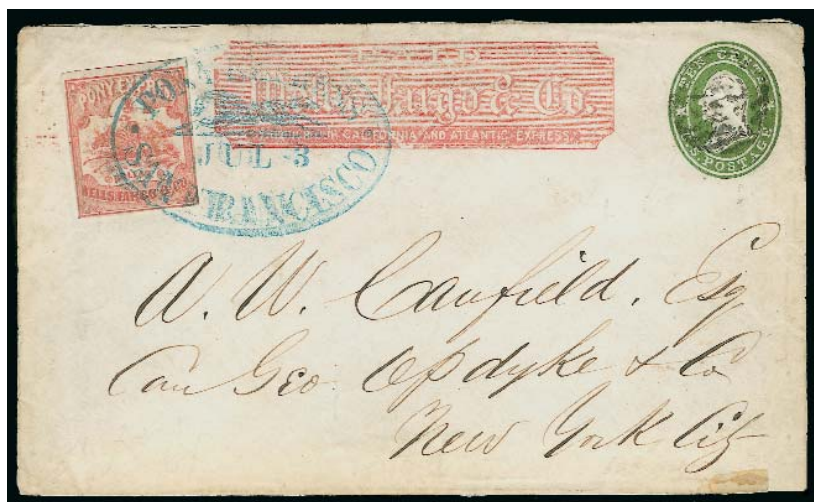 PAID
Wells, Fargo & Co.
OUR CALIFORNIA AND ATLANTIC EXPRESS.
PONY EXPRESS
WELLS, FARGO & CO.
PONY EXPRESS
JUL 3
SAN FRANCISCO
TEN CENTS
U.S. POSTAGE
A. W. Canfield, Esq
Care Geo Opdyke & Co
New York City